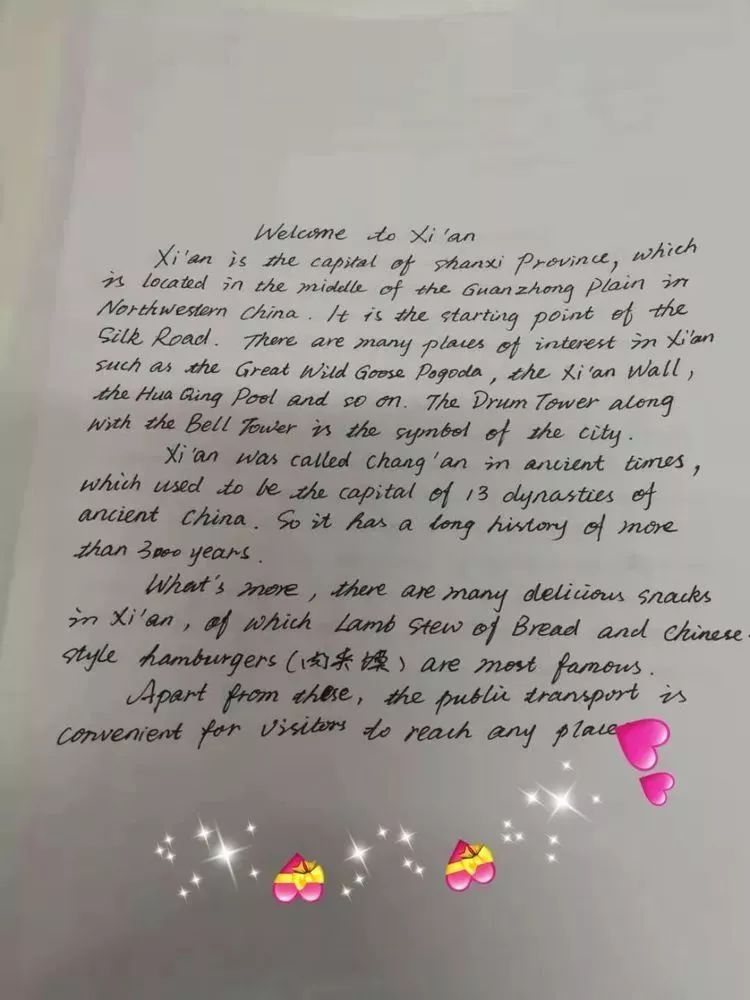 Welcome to Xi'an
Xi'an is the capital of shanxi Province, which
is located in the middle of the Guanzhong Plain in
Northwestern China. It is the starting point of the
Silk Road. There are many places of interest in Xi'an
such as the Great Wild Goose Pagoda, the Xi'an Wall,
the Hua Qing Pool and so on. The Drum Tower along
with the Bell Tower is the symbol of the city.
Xi'an was called Chang'an in ancient times,
which used to be the capital of 13 dynasties of
ancient China. So it has a long history of more
than 3000 years.
What's more, there are many delicious snacks
in Xi'an, of which Lamb Stew of Bread and Chinese-
style hamburgers (肉夹馍) are most famous.
Apart from these, the public transport is
convenient for visitors to reach any place